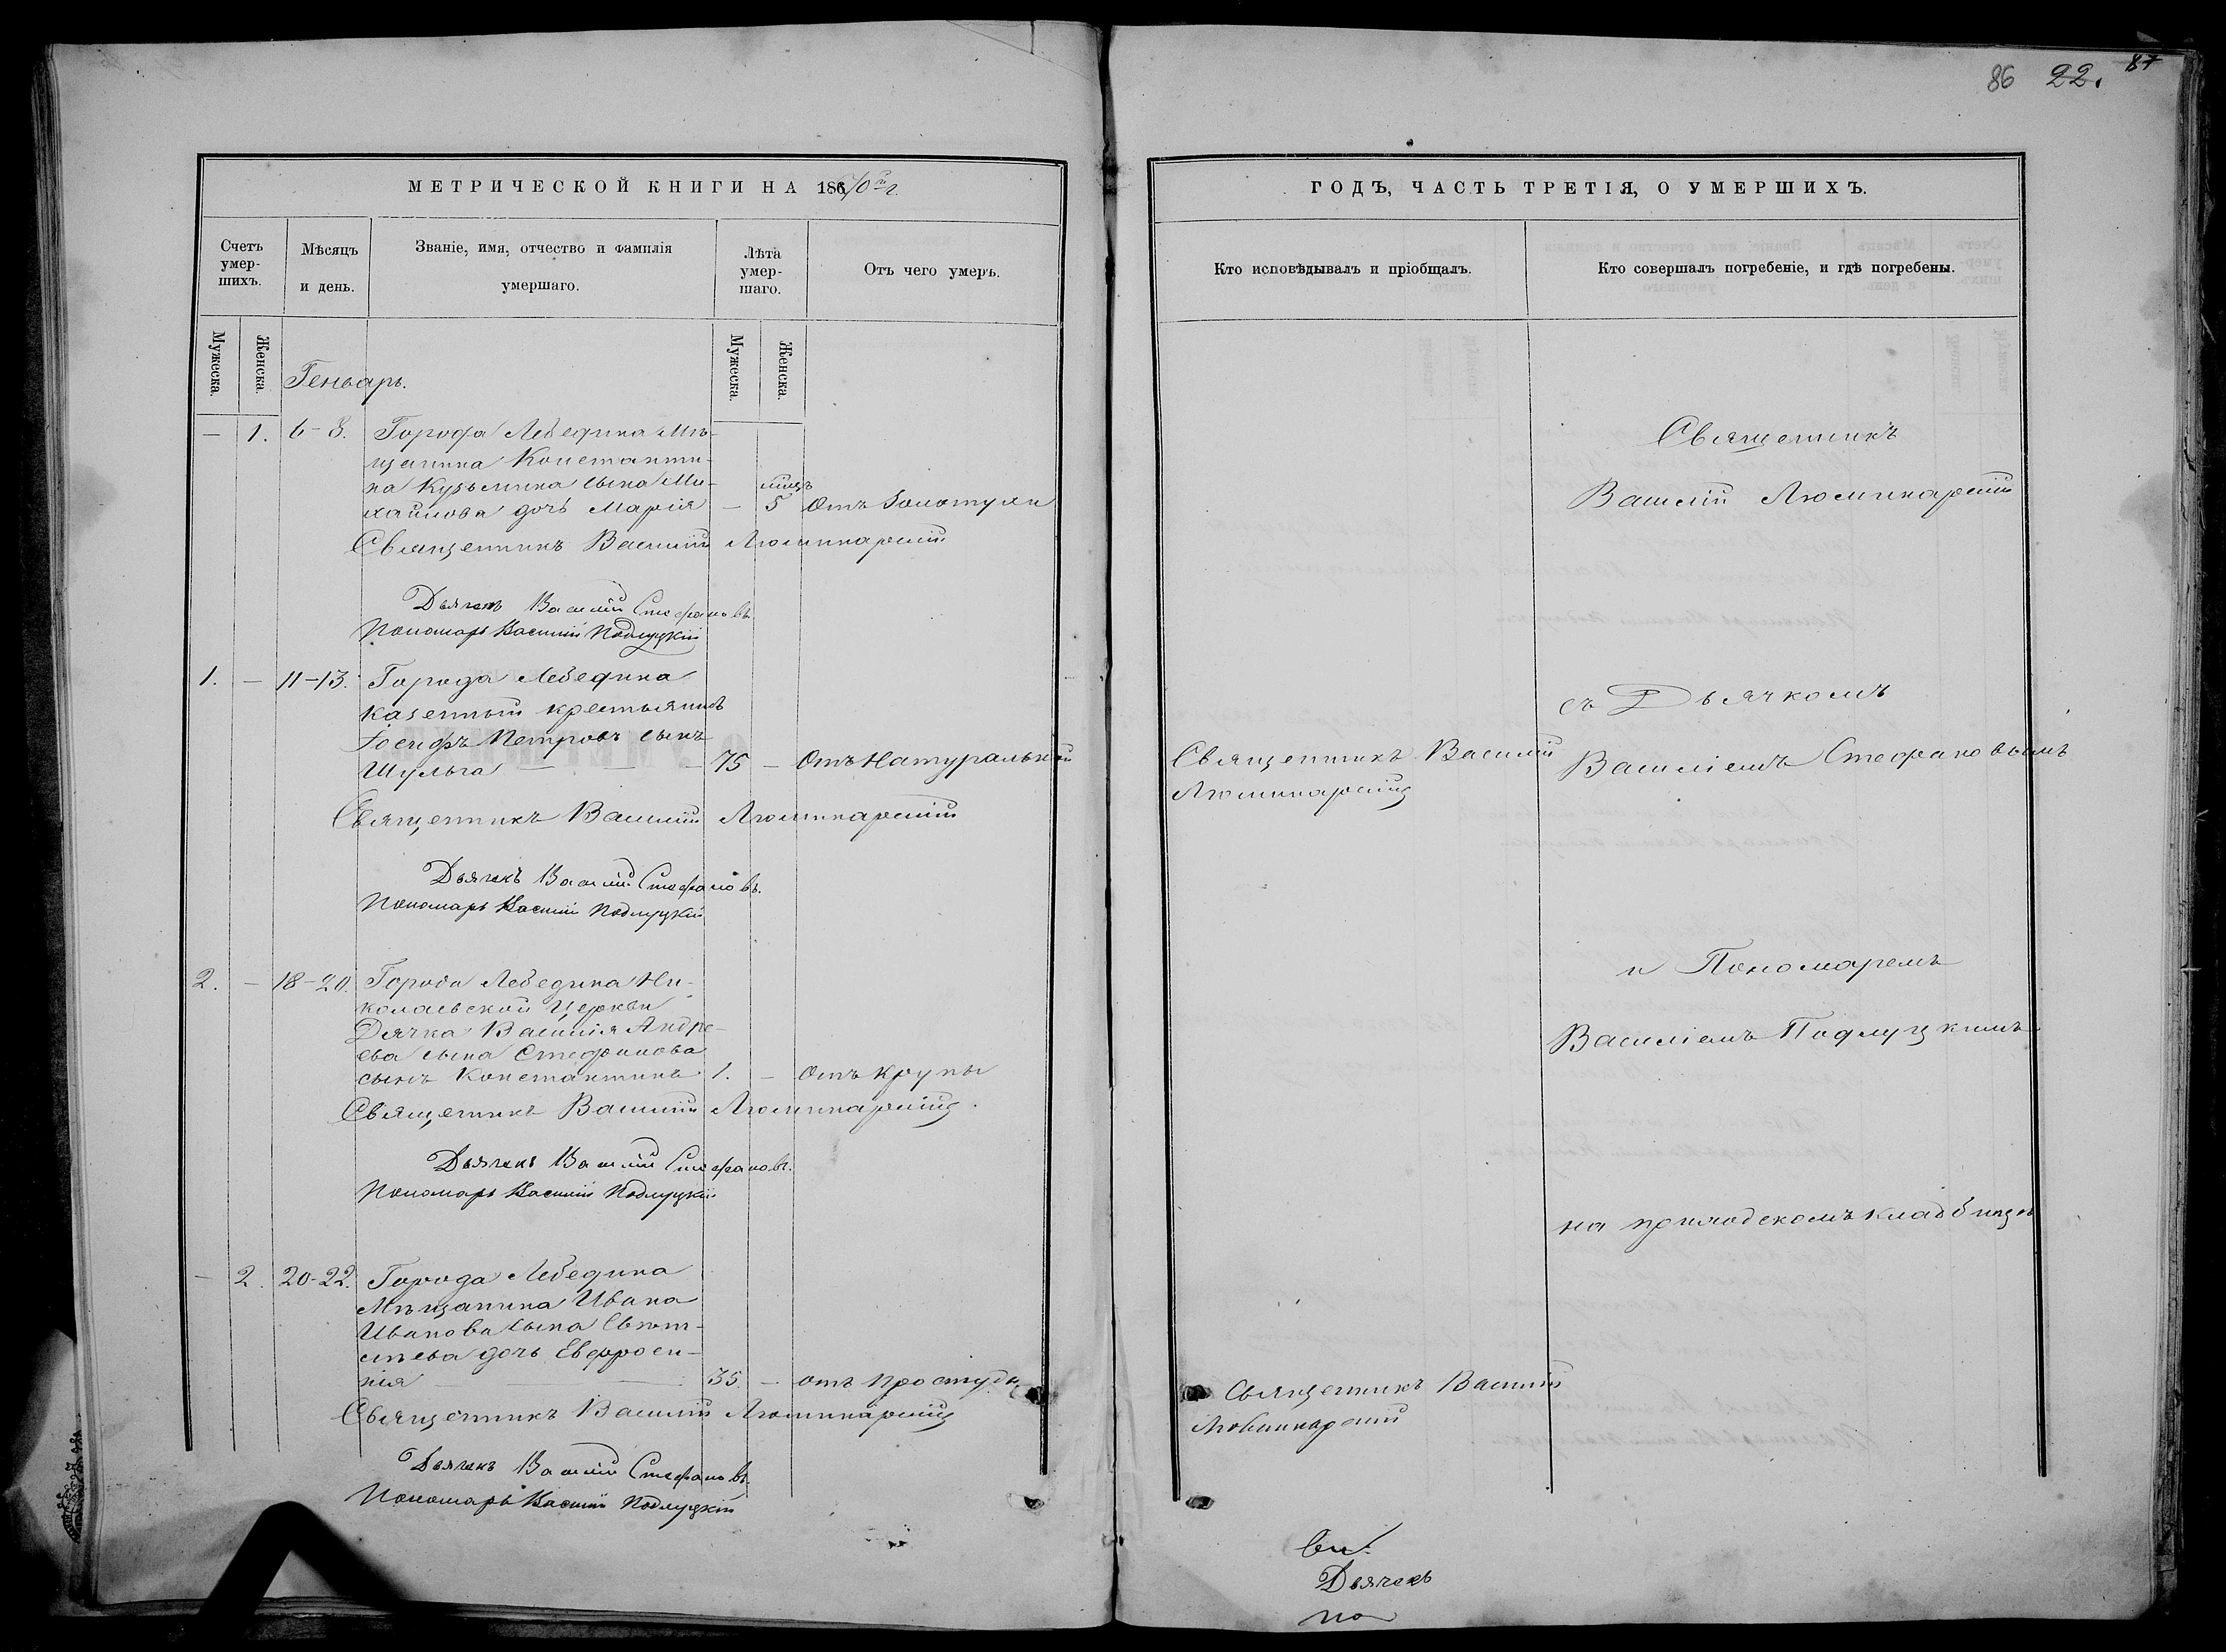 86 22. 87
МЕТРИЧЕСКОЙ КНИГИ НА 186/70 г.
Счетъ умер-шихъ.
Мѣсяцъ и день.
Званіе, имя, отчество и фамилія умершаго.
Лѣта умер-шаго.
Отъ чего умеръ.
Мужеска.
Женска.
Мужеска.
Женска.
Геньварь.
— 1. 6-8. Города Лебедина Мѣ-
щанина Константи-
на Кузьмина сына Ми-
хайлова дочь Марія — 5 отъ Золотухи
Священникъ Василій Люминарскій
Дьячекъ Василій Стефановъ
Пономарь Василій Подлуцкій
1. — 11-13. Города Лебедина
казенный крестьянинъ
Іосифъ Петровъ сынъ
Шульга — — — 75 — Отъ Натуральной
Священникъ Василій Люминарскій
Дьячекъ Василій Стефановъ.
Пономарь Василій Подлуцкій
2. — 18-20. Города Лебедина Ни-
колаевской Церкви
Дячка Василія Андре-
ева сына Стефанова
сынъ Константинъ 1. — Отъ крупы
Священникъ Василій Люминарскій.
Дьячекъ Василій Стефановъ.
Пономарь Василій Подлуцкій
— 2. 20-22. Города Лебедина
Мѣщанина Ивана
Иванова сына
дочь Евфроси-
нія — 35. — отъ простуды
Священникъ Василій Люминарскій
Дьячекъ Василій Стефановъ
Пономарь Василій Подлуцкій
ГОДЪ, ЧАСТЬ ТРЕТІЯ, О УМЕРШИХЪ.
Кто исповѣдывалъ и пріобщалъ.
Кто совершалъ погребеніе, и гдѣ погребены.
Священникъ
Василій Люминарскій
съ Дьячкомъ
Священникъ Василій
Люминарскій
Василіемъ Стефановымъ
и Пономаремъ
Василіемъ Подлуцкимъ
на приходскомъ кладбищѣ
Священникъ Василій
Люминарскій
Свя.
Дьячекъ
По